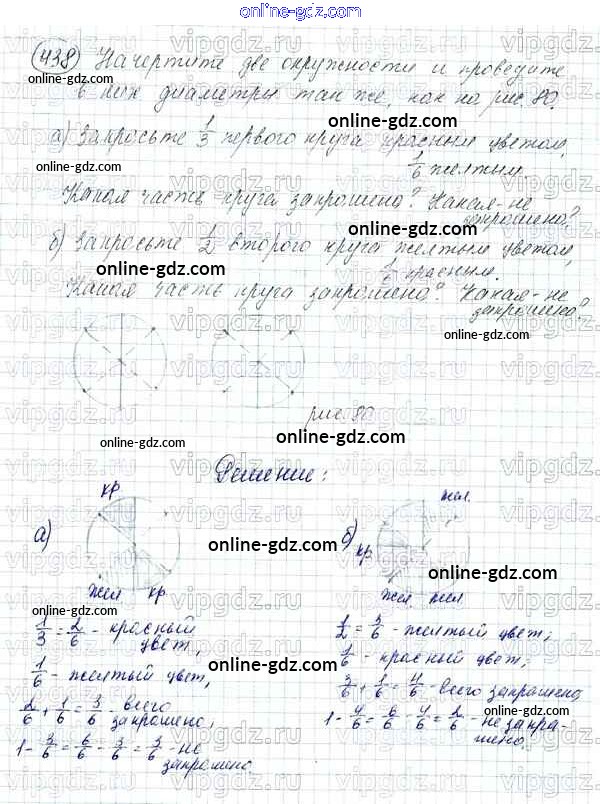 online-gdz.com
438 Начертите две окружности и проведите
в них диаметры так же, как на рис. 80.
online-gdz.com
а) Закрасьте 1/3 первого круга красным цветом,
online-gdz.com
1/6 желтым.
Какая часть круга закрашена? Какая - не
закрашена?
online-gdz.com
б) Закрасьте 1/2 второго круга желтым цветом,
online-gdz.com
1/6 красным.
Какая часть круга закрашена? Какая - не
закрашена?
online-gdz.com
online-gdz.com
рис. 80
online-gdz.com
online-gdz.com
Решение:
кр
жел.
а)
б)
online-gdz.com
кр
online-gdz.com
жел кр
жел жел
online-gdz.com
1/3 = 2/6 - красный
цвет,
1/2 = 3/6 - желтый цвет;
1/6 - желтый цвет,
1/6 - красный цвет;
online-gdz.com
2/6 + 1/6 = 3/6 - всего
закрашено,
3/6 + 1/6 = 4/6 - всего закрашено
online-gdz.com
1 - 3/6 = 6/6 - 3/6 = 3/6 - не
закрашено.
1 - 4/6 = 6/6 - 4/6 = 2/6 - не закра-
шено.
online-gdz.com
vipgdz.ru